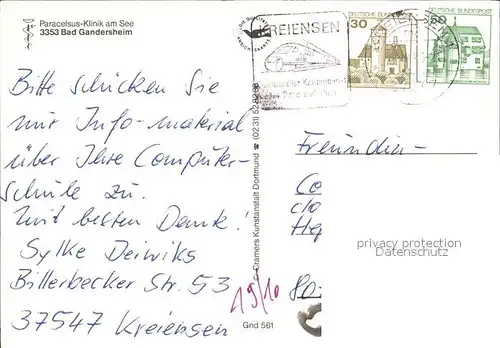 Paracelsus-Klinik am See
3353 Bad Gandersheim
Bitte schicken Sie
mir Info-material
über Ihre Computer-
schule zu.
Mit besten Dank!
Sylke Deiwiks
Billerbecker Str. 53
37547 Kreiensen
19/10
Gnd 561
Cramers Kunstanstalt Dortmund ☎ (0231)
KREIENSEN
DEUTSCHE BUNDESPOST
30
DEUTSCHE BUNDESPOST
50
Freundin-
Co
c/o
privacy protection
Datenschutz
80